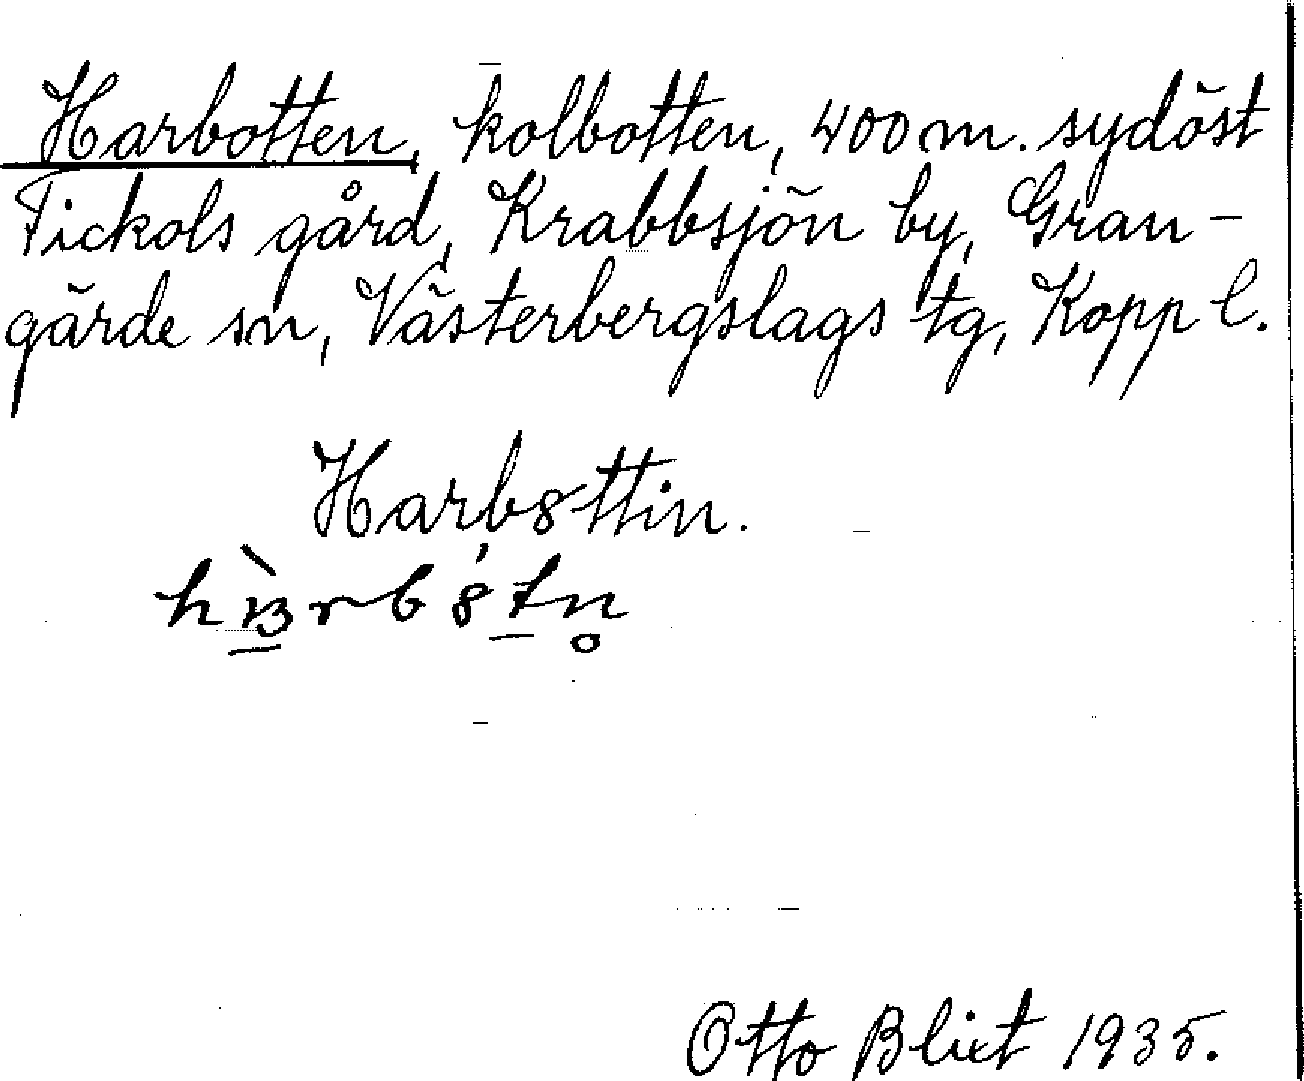 Harbotten, kolbotten, 400 m. sydöst
Fickols gård, Krabbsjön by, Gran-
gärde sn, Västerbergslags tg, Kopp l.
Harb8ttin.
Otto Blixt 1935.